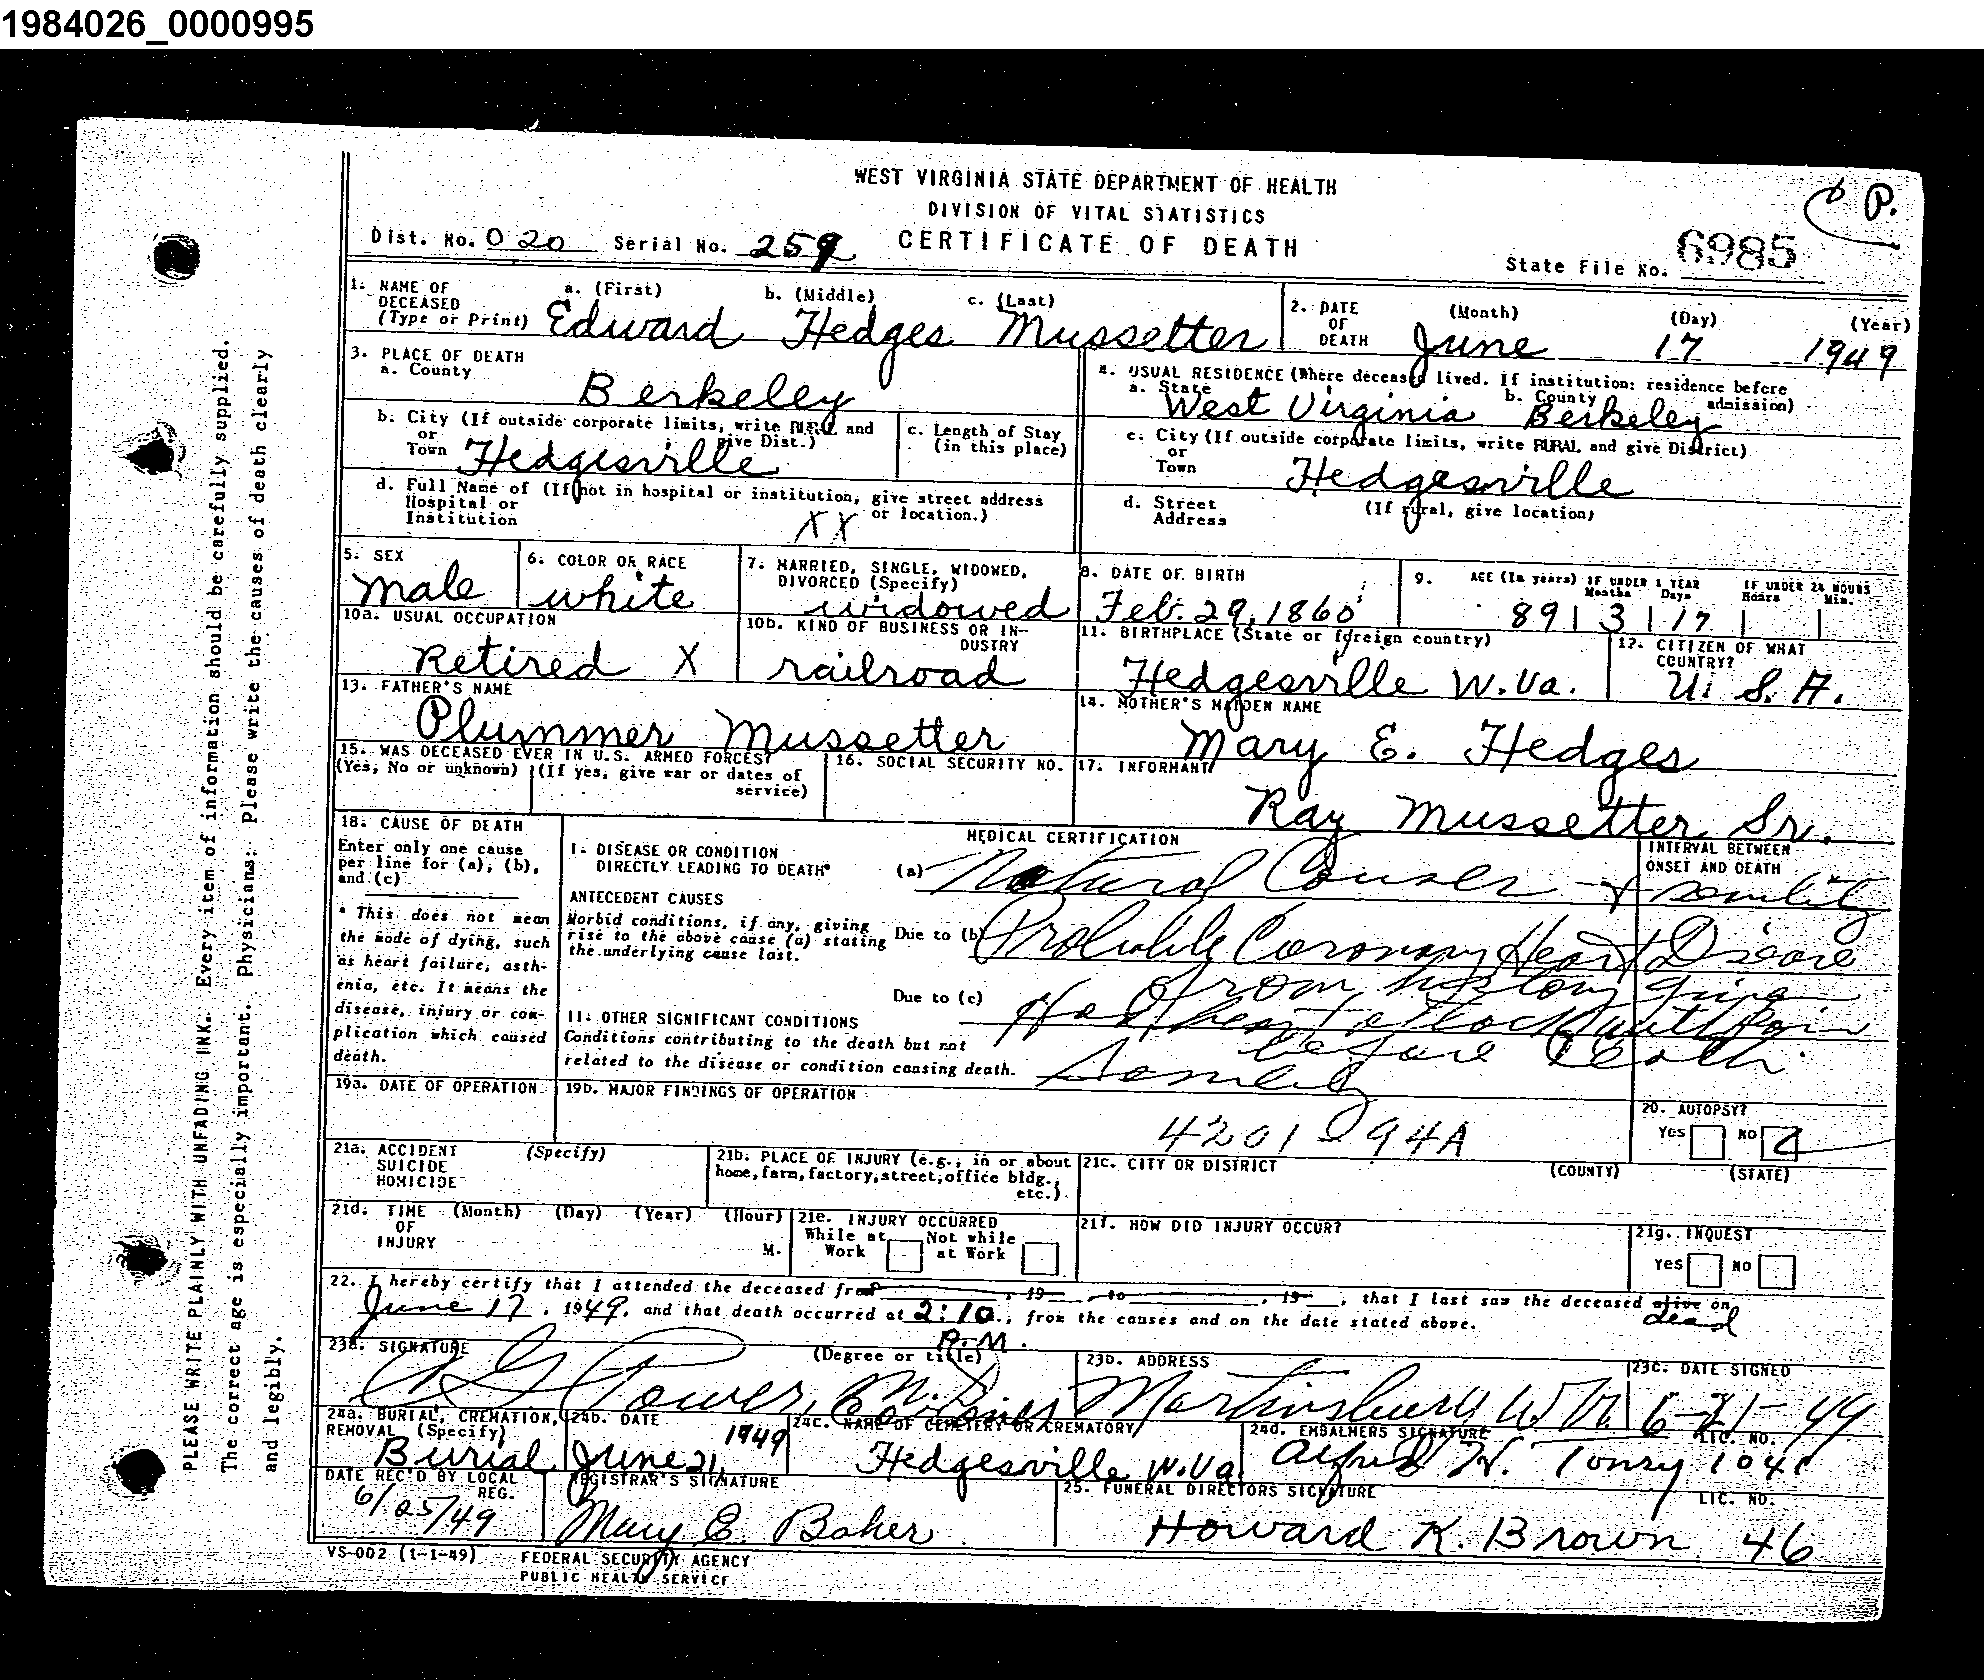 1984026_0000995
WEST VIRGINIA STATE DEPARTMENT OF HEALTH
DIVISION OF VITAL STATISTICS
CERTIFICATE OF DEATH
P.
Dist. No. 020 Serial No. 259
State File No. 6985
1. NAME OF DECEASED (Type or Print) a. (First) b. (Middle) c. (Last)
Edward Hedges Mussetter
2. DATE OF DEATH (Month) (Day) (Year)
June 17 1949
3. PLACE OF DEATH
a. County
Berkeley
b. City (If outside corporate limits, write RURAL and give Dist.)
or Town Hedgesville
c. Length of Stay (in this place)
d. Full Name of (If not in hospital or institution, give street address or location.)
Hospital or Institution
XX
4. USUAL RESIDENCE (Where deceased lived. If institution: residence before admission)
a. State b. County
West Virginia Berkeley
c. City (If outside corporate limits, write RURAL and give District)
or Town
Hedgesville
d. Street Address (If rural, give location)
5. SEX
male
6. COLOR OR RACE
white
7. MARRIED, SINGLE, WIDOWED, DIVORCED (Specify)
widowed
8. DATE OF BIRTH
Feb. 29, 1860
9. AGE (In years) IF UNDER 1 YEAR Months Days IF UNDER 24 HOURS Hours Min.
89 3 17
10a. USUAL OCCUPATION
Retired X
10b. KIND OF BUSINESS OR INDUSTRY
railroad
11. BIRTHPLACE (State or foreign country)
Hedgesville W.Va.
12. CITIZEN OF WHAT COUNTRY?
U. S. A.
13. FATHER'S NAME
Plummer Mussetter
14. MOTHER'S MAIDEN NAME
Mary E. Hedges
15. WAS DECEASED EVER IN U.S. ARMED FORCES?
(Yes, No or unknown) (If yes, give war or dates of service)
16. SOCIAL SECURITY NO.
17. INFORMANT
Ray Mussetter Sr.
18. CAUSE OF DEATH
Enter only one cause per line for (a), (b), and (c)
* This does not mean the mode of dying, such as heart failure, asthenia, etc. It means the disease, injury or complication which caused death.
MEDICAL CERTIFICATION
INTERVAL BETWEEN ONSET AND DEATH
I. DISEASE OR CONDITION DIRECTLY LEADING TO DEATH*
(a) Natural Causes + senility
ANTECEDENT CAUSES
Morbid conditions, if any, giving rise to the above cause (a) stating the underlying cause last.
Due to (b) Probable Coronary Heart Disease
from history given
Due to (c) Had heart attack with pain
before death
II. OTHER SIGNIFICANT CONDITIONS
Conditions contributing to the death but not related to the disease or condition causing death.
Senility
19a. DATE OF OPERATION
19b. MAJOR FINDINGS OF OPERATION
4201 94A
20. AUTOPSY?
YES NO
21a. ACCIDENT SUICIDE HOMICIDE (Specify)
21b. PLACE OF INJURY (e.g., in or about home, farm, factory, street, office bldg., etc.)
21c. CITY OR DISTRICT (COUNTY) (STATE)
21d. TIME OF INJURY (Month) (Day) (Year) (Hour) M.
21e. INJURY OCCURRED
While at Work Not while at Work
21f. HOW DID INJURY OCCUR?
21g. INQUEST
YES NO
22. I hereby certify that I attended the deceased from , 19 , to , 19 , that I last saw the deceased alive on
dead
June 17, 1949, and that death occurred at 2:10 ., from the causes and on the date stated above.
P.M.
23a. SIGNATURE (Degree or title)
Power, M.D. Coroner
23b. ADDRESS
Martinsburg W Va.
23c. DATE SIGNED
6-21-49
24a. BURIAL, CREMATION, REMOVAL (Specify)
Burial
24b. DATE
June 21, 1949
24c. NAME OF CEMETERY OR CREMATORY
Hedgesville W.Va
24d. EMBALMERS SIGNATURE LIC. NO.
Alfred H. Tonry 1041
DATE REC'D BY LOCAL REG.
6/25/49
REGISTRAR'S SIGNATURE
Mary E. Baker
25. FUNERAL DIRECTORS SIGNATURE LIC. NO.
Howard K. Brown 46
VS-002 (1-1-49) FEDERAL SECURITY AGENCY
PUBLIC HEALTH SERVICE
PLEASE WRITE PLAINLY WITH UNFADING INK. Every item of information should be carefully supplied.
The correct age is especially important. Physicians: Please write the causes of death clearly
and legibly.